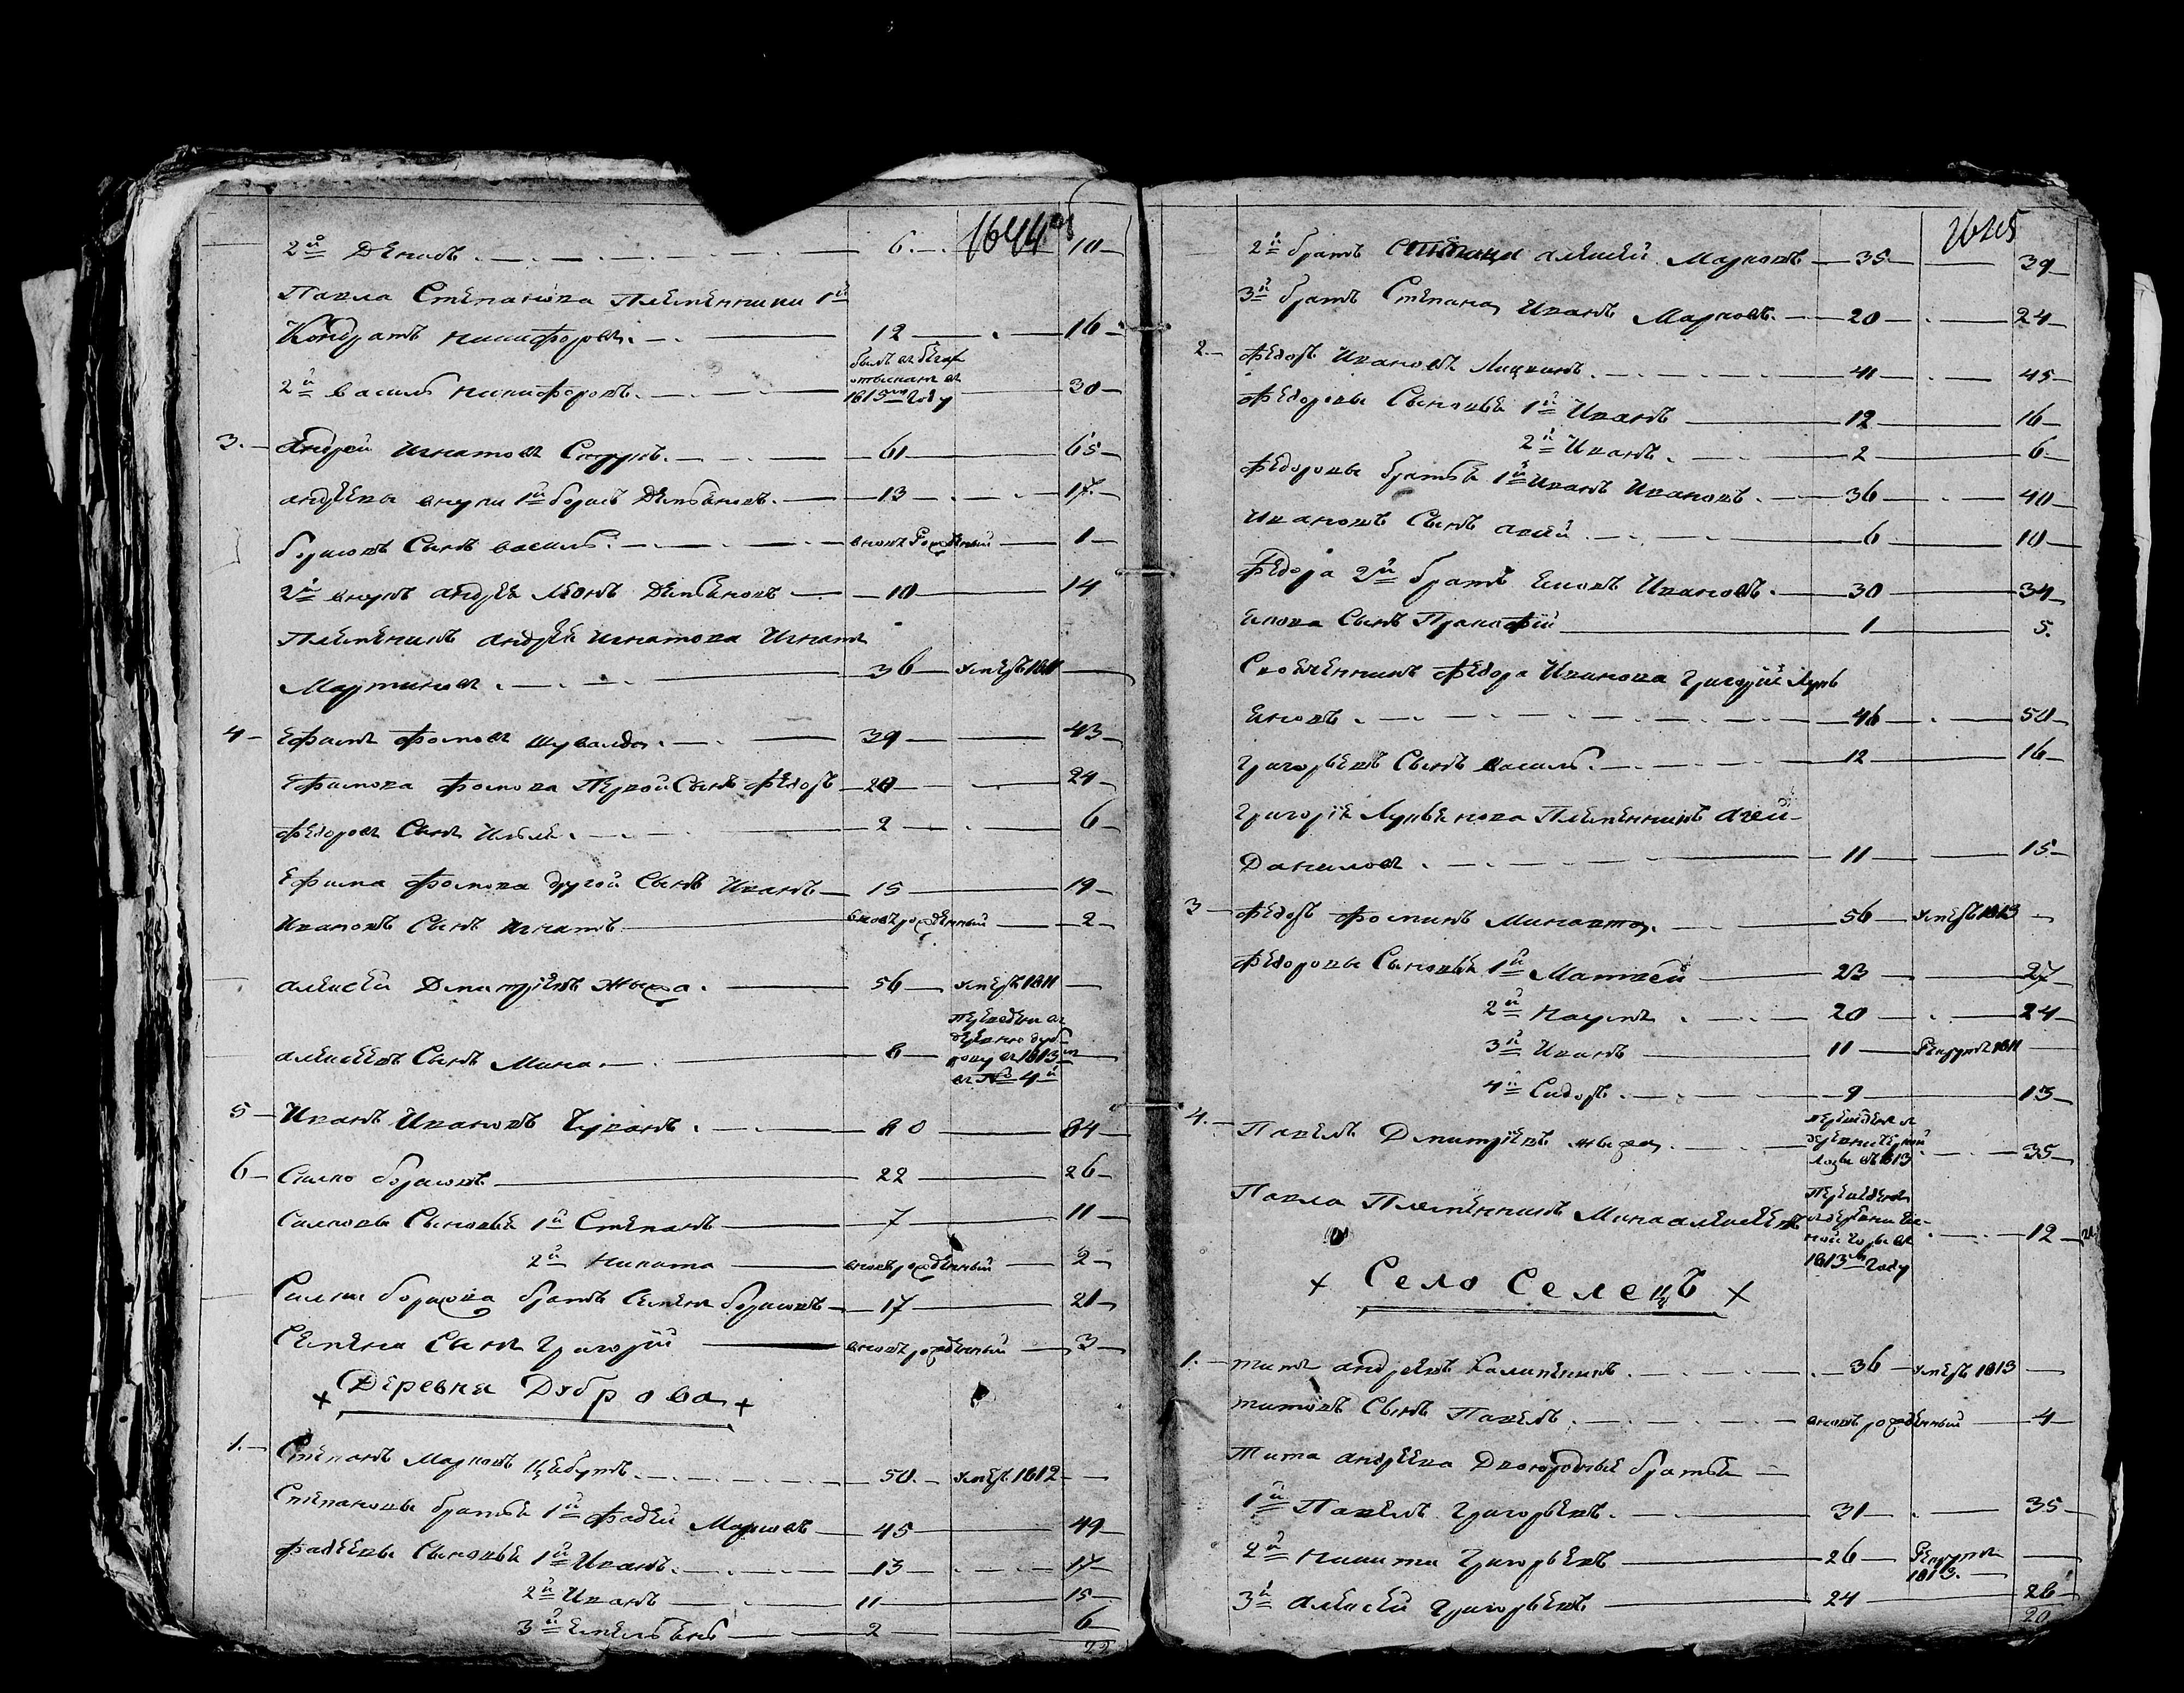 1644 об
2й Денисъ 6 10
Павла Степанова Племенники 1й
Кондратъ Никифоровъ 12 16
2й василь Никифоровъ былъ въ бегах отысканъ въ 1815м году 30
3. Андрей Игнатовъ 61 65
андрѣевы внуки 1й борисъ Демьяновъ 13 17
борисовъ Сынъ василь вновь рожденный 1
2й внукъ андрея Леонъ Демьяновъ 10 14
Племенникъ андрея игнатова Игнатъ
Мартиновъ 36 умеръ 1811
4 Ефимъ Фомовъ Шувалда 39 43
Ефимова Фомова Первой Сынъ Федоръ 20 24
Федоровъ Сынъ Илья 2 6
Ефима Фомова другой Сынъ Иванъ 15 19
Ивановъ Сынъ Игнатъ вновь рожденный 2
алексей Дмитрiевъ 56 умеръ 1811
алексеевъ Сынъ Мина 8 переведенъ въ деревню дуброву въ 1813м въ № 4й
5 Иванъ Ивановъ 80 84
6 Силко борисовъ 22 26
Силковы Сыновья 1й Степанъ 7 11
2й Никита вновь рожденный 2
Силки борисова братъ Семенъ борисовъ 17 21
Семена Сынъ Григорiй вновь рожденный 3
+ Деревня Дуброва +
1. Степанъ Марковъ 50 умеръ 1812
Степановы братья 1й Фадей Марковъ 45 49
Фадеевы Сыновья 1й Иванъ 13 17
2й Иванъ 11 15
3й Емельянъ 2 6
22
1645
2й братъ Степана алексей Марковъ 35 39
3й братъ Степана Иванъ Марковъ 20 24
2. Федоръ Ивановъ Лицкинъ 41 45
Федоровы Сыновья 1й Иванъ 12 16
2й Иванъ 2 6
Федоровы братья 1й Иванъ Ивановъ 36 40
Ивановъ Сынъ 6 10
Федора 2й братъ Ивановъ 30 34
Сынъ Пракофiй 1 5
Свояченникъ Федора Иванова Григорiй Лукья
новъ 46 50
Григорьевъ Сынъ василь 12 16
Григорiя Лукьянова Племенникъ
Даниловъ 11 15
3 Федоръ Фоминъ 56 умеръ 1813
Федоровы Сыновья 1й Матвей 23 27
2й Наумъ 20 24
3й Иванъ 11 Рекрутъ 1811
4й Сидоръ 9 13
4. Павелъ Дмитрiевъ переведенъ 1813 35
Павла Племенникъ Мина алексеевъ переведенъ 1813м году 12
+ Село Селецъ +
1. титъ андреевъ Калиненикъ 36 умеръ 1813
титовъ Сынъ Павелъ вновь рожденный 4
Тита андреева Двоюродные братья
1й Павелъ Григорьевъ 31 35
2й никита Григорьевъ 26 Рекрутъ 1813.
3й алексей Григорьевъ 24 28
20